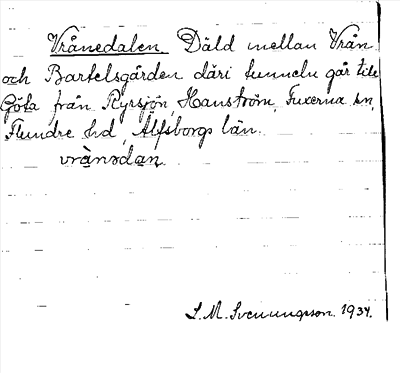 Vrånedalen. Däld mellan Vrån
och Bartelsgården däri tunneln går till
Göta från Ryrsjön, Hanström, Fuxerna sn,
Flundre hd, Älfsborgs län.
vrånədan
S. M. Svenungsson. 1934.